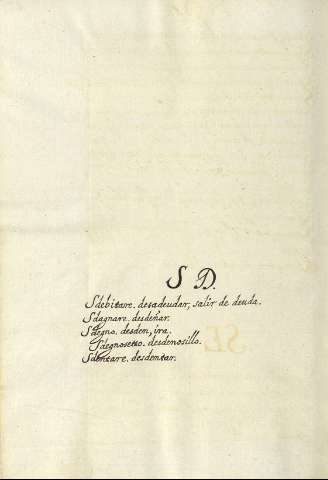 S D.
Sdebitare. desadeudar, salir de deuda.
Sdagnare. desdeñar.
Sdegno. desden, ira.
Sdegnosetto. desdenosillo.
Sdentare. desdentar.